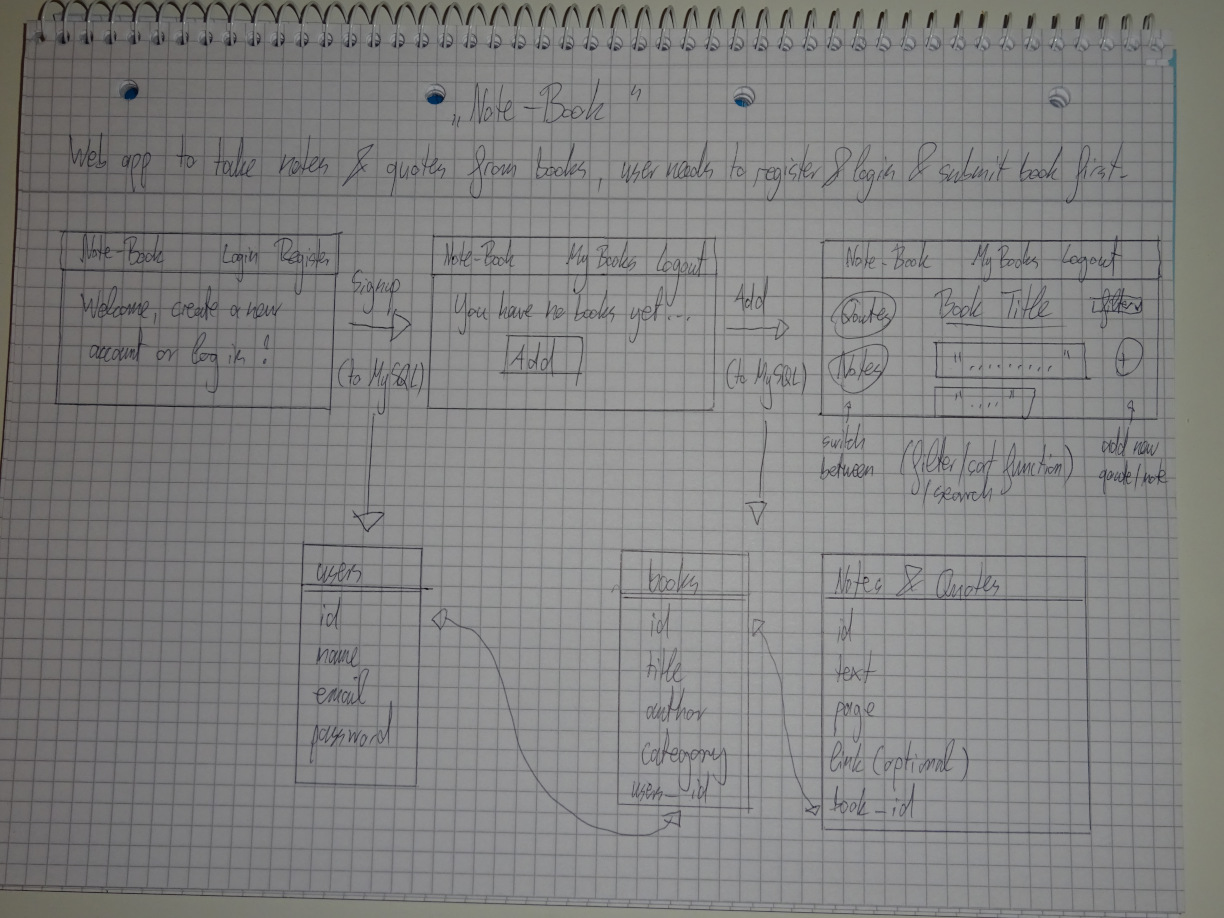 „Note-Book"
Web app to take notes & quotes from books, user needs to register & login & submit book first.
Note-Book Login Register
Welcome, create a new
account or log in!
Signup
(to MySQL)
Note-Book My Books Logout
You have no books yet...
Add
Add
(to MySQL)
Note-Book My Books Logout
Quotes
Book Title
Notes
"........."
+
"...."
switch
between
(filter/sort function)
/search
add new
quote/note
users
id
name
email
password
books
id
title
author
category
users_id
Notes & Quotes
id
text
page
link (optional)
book_id